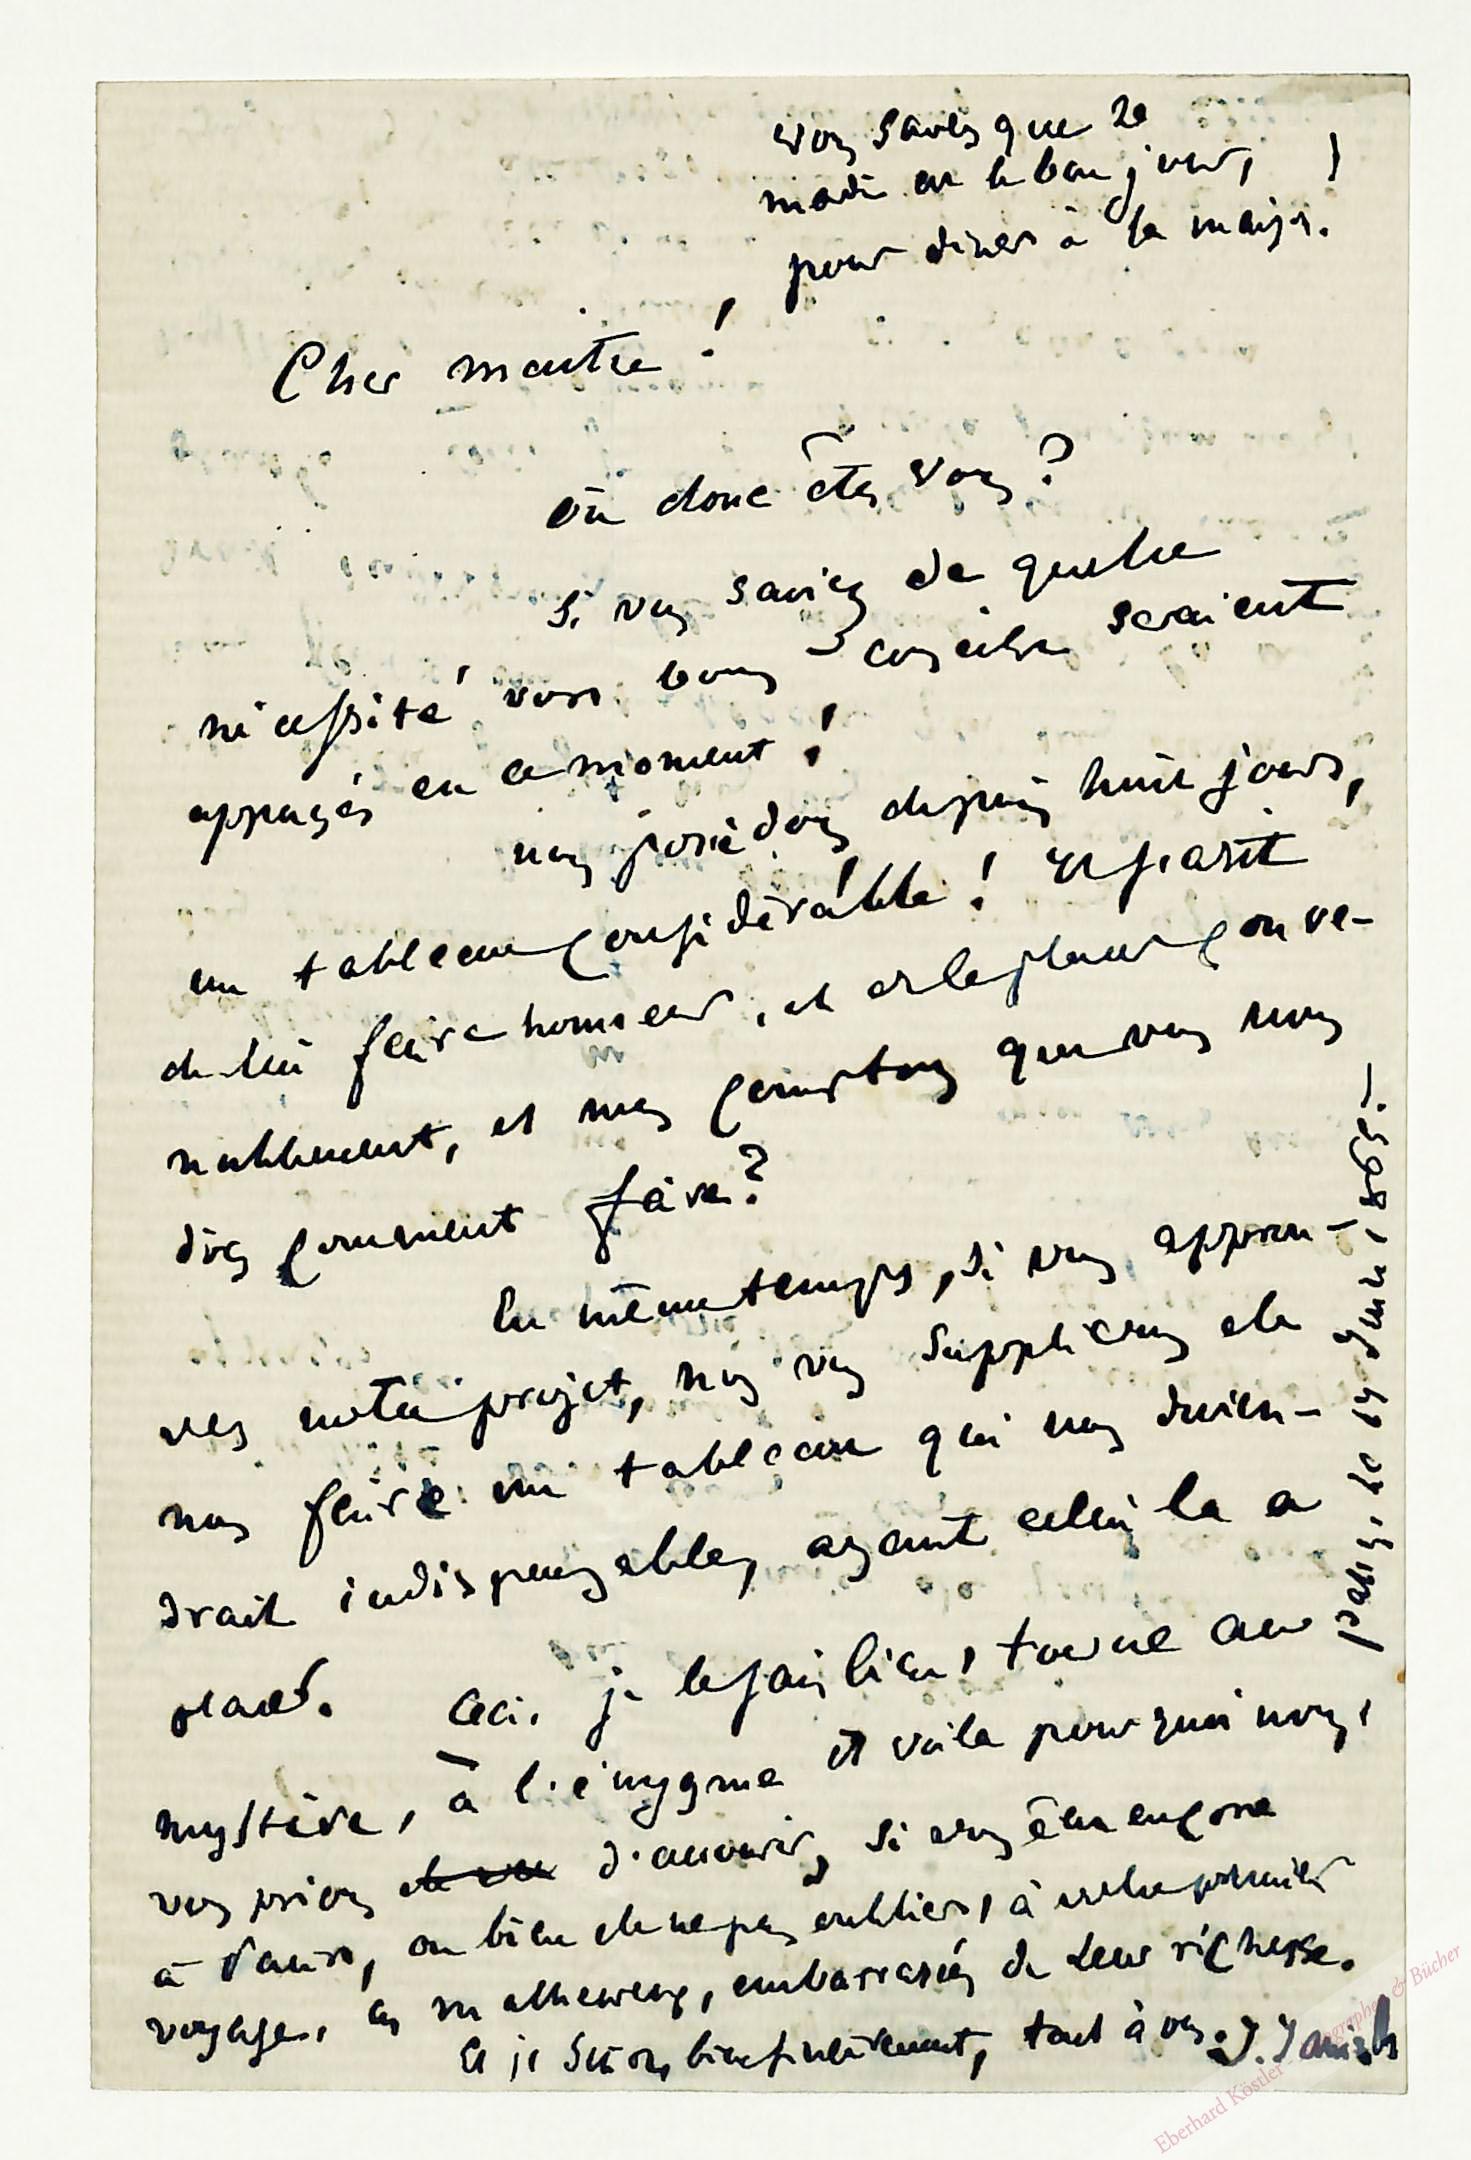 vous savez que le
mardi est le bon jour,
pour diner à la maison.
Cher maitre !
où donc êtes vous ?
si vous saviez de quelle
nécessité vos bons conseils seraient
appuyés en ce moment !
nous possédons depuis huit jours,
un tableau considérable ! il s'agit
de lui faire honneur, et de le placer conve-
nablement, et nous comptons que vous nous
direz comment faire ?
En même temps, si vous approu-
vez notre projet, nous vous supplierons de
nous faire un tableau qui nous devien-
drait indispensable, ayant celui là à
placer. Ceci, je le sais bien, tourne au
mystère, à l'énygme et voila pourquoi nous,
vous prions d'accourir, si vous êtes encore
à Paris, ou bien de ne pas oublier, à votre premier
voyage, ces malheureux, embarrassés de leur richesse.
Et je suis bien sincèrement, tout à vous. J. Janin
paris, le 17 1865.
Eberhard Köstler - Autographen & Bücher